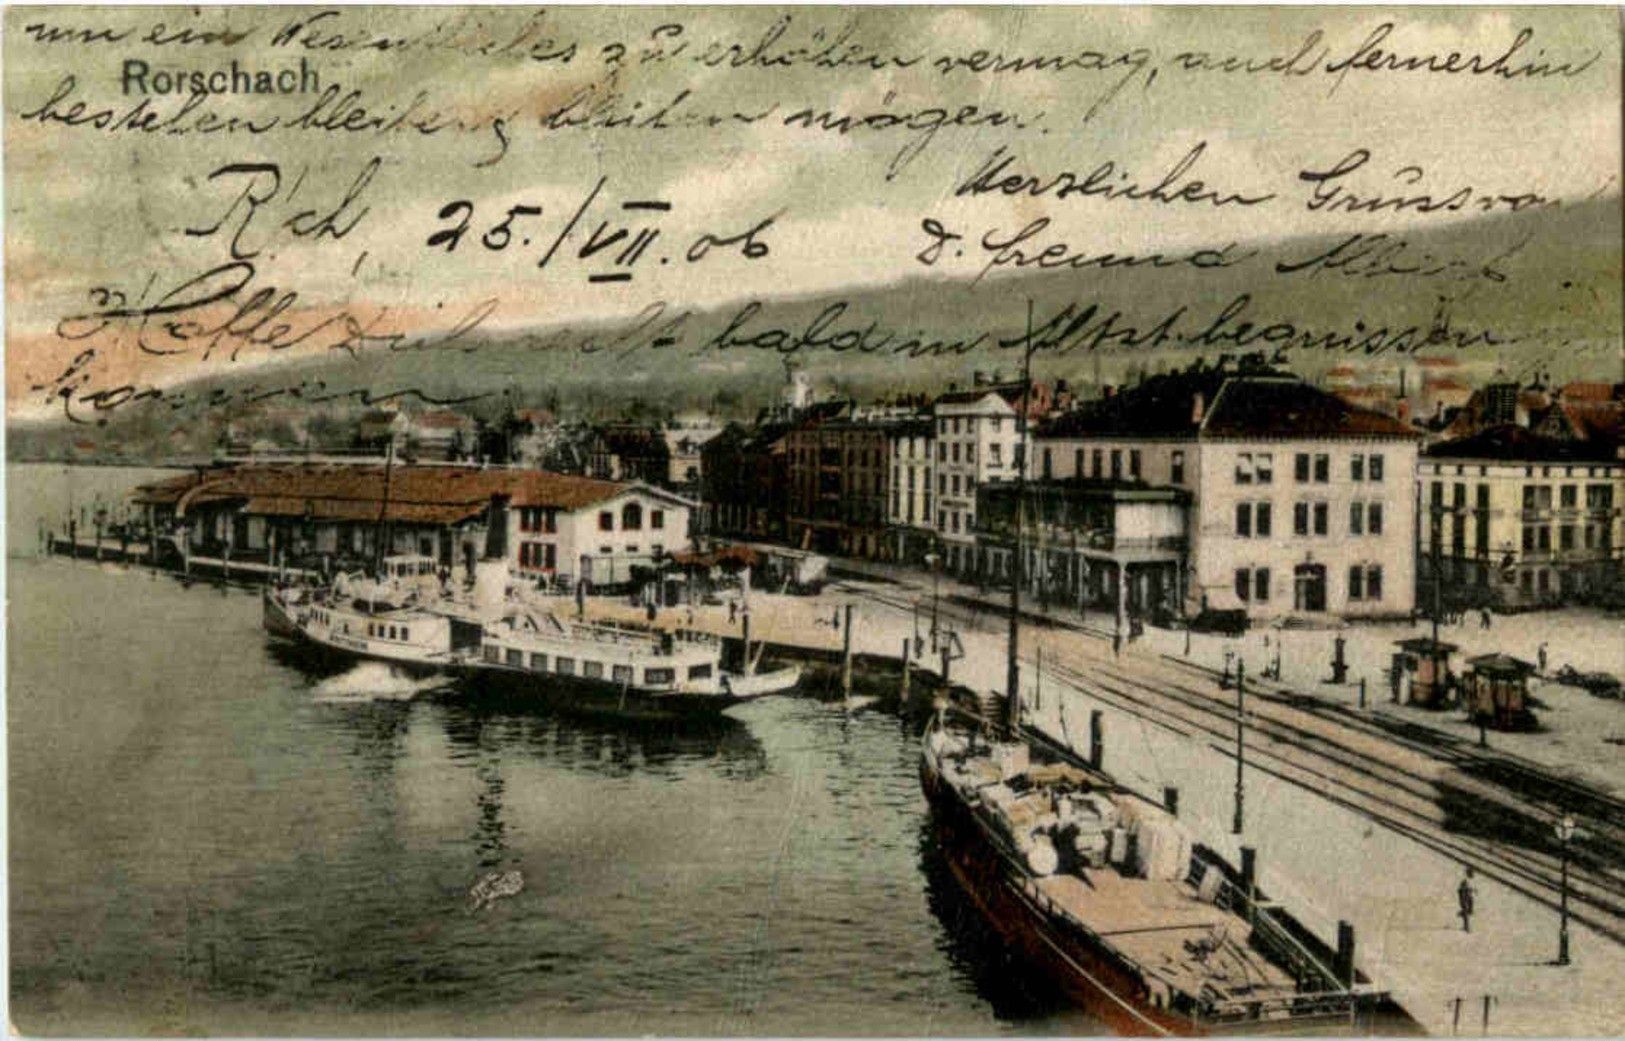 um ein Wesentliches zu erhöhen vermag, auch fernerhin
Rorschach
bestehen bleiben mögen.
Herzlichen Gruss von
R'ch, 25./VII.06
D. Freund
Hoffe Dich recht bald in Altst. begrüssen
können.